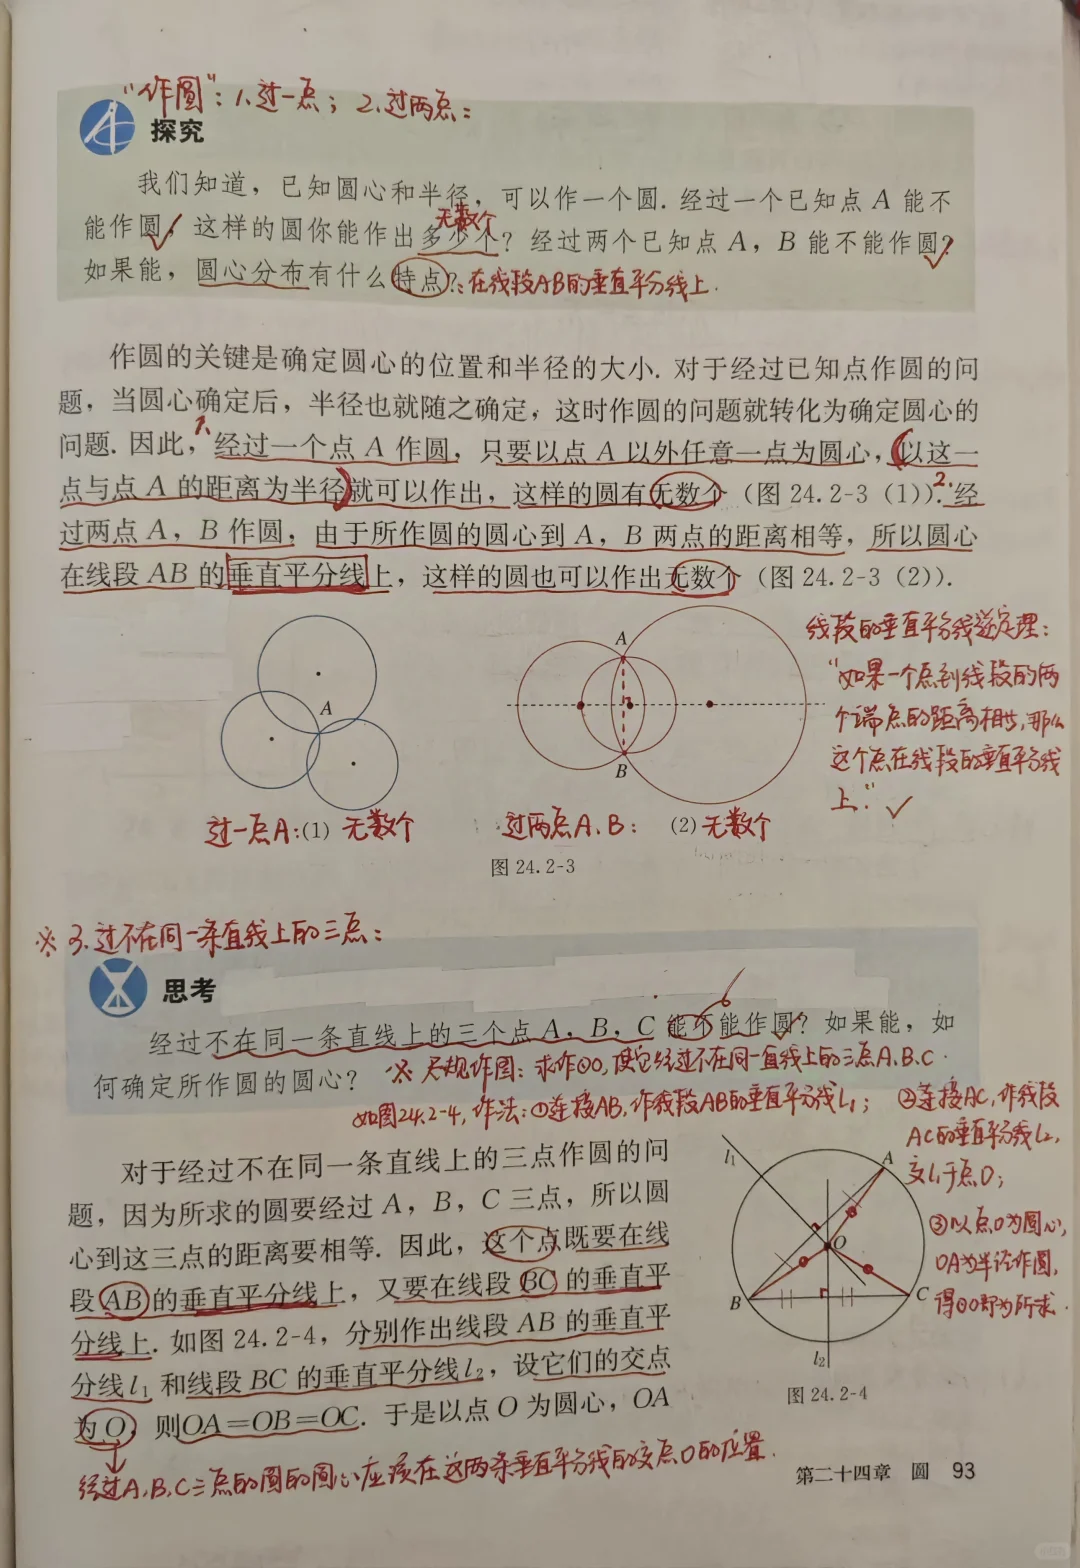 “作圆”：1.过一点；2.过两点：
探究
我们知道，已知圆心和半径，可以作一个圆. 经过一个已知点 A 能不
无数个
能作圆？这样的圆你能作出多少个？经过两个已知点 A，B 能不能作圆？
如果能，圆心分布有什么特点？：在线段AB的垂直平分线上.
作圆的关键是确定圆心的位置和半径的大小. 对于经过已知点作圆的问
题，当圆心确定后，半径也就随之确定，这时作圆的问题就转化为确定圆心的
问题. 因此，1、经过一个点 A 作圆，只要以点 A 以外任意一点为圆心，(以这一
点与点 A 的距离为半径)就可以作出，这样的圆有无数个（图 24.2-3（1））. 2.经
过两点 A，B 作圆，由于所作圆的圆心到 A，B 两点的距离相等，所以圆心
在线段 AB 的垂直平分线上，这样的圆也可以作出无数个（图 24.2-3（2））.
A
A
B
线段的垂直平分线逆定理：
“如果一个点到线段的两
个端点的距离相等，那么
这个点在线段的垂直平分线
上.”
过一点A：(1) 无数个
过两点A、B： (2) 无数个
图 24.2-3
※ 3.过不在同一条直线上的三点：
思考
经过不在同一条直线上的三个点 A，B，C 能不能作圆？如果能，如
何确定所作圆的圆心？ ※ 尺规作图：求作⊙O，使它经过不在同一直线上的三点A、B、C.
如图24.2-4，作法：①连接AB，作线段AB的垂直平分线l₁； ②连接AC，作线段
AC的垂直平分线l₂，
交l₁于点O；
③以点O为圆心，
OA为半径作圆，
得⊙O即为所求.
对于经过不在同一条直线上的三点作圆的问
题，因为所求的圆要经过 A，B，C 三点，所以圆
心到这三点的距离要相等. 因此，这个点既要在线
段 AB 的垂直平分线上，又要在线段 BC 的垂直平
分线上. 如图 24.2-4，分别作出线段 AB 的垂直平
分线l₁ 和线段 BC 的垂直平分线l₂，设它们的交点
为 O，则OA=OB=OC. 于是以点 O 为圆心，OA
l₁
A
O
B
C
l₂
图 24.2-4
经过A、B、C三点的圆的圆心应该在这两条垂直平分线的交点O的位置.
第二十四章 圆 93